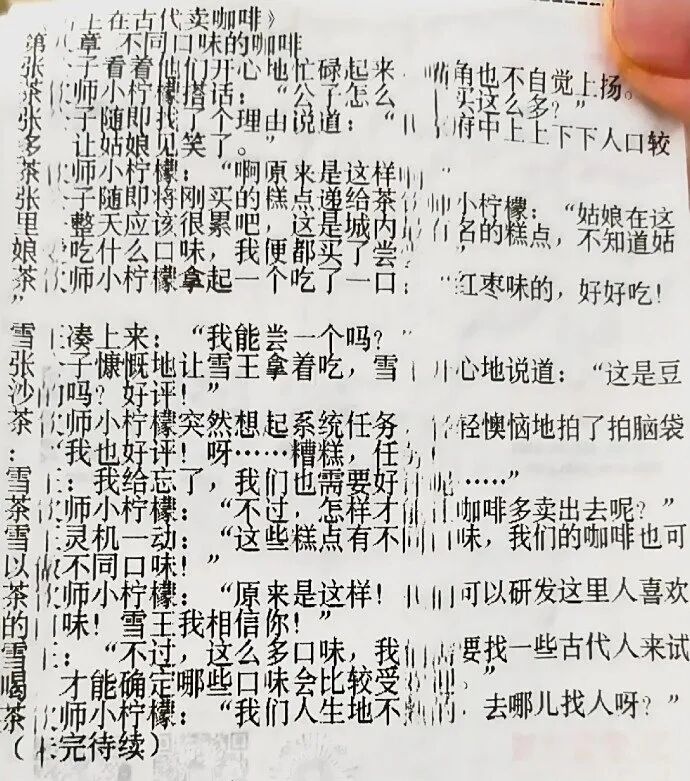 上在古代卖咖啡》
第 章 不同口味的咖啡
张 子看着他们开心地忙碌起来 角也不自觉上扬。
茶 师小柠檬搭话:“公子怎么 买这么多?”
张 子随即找了个理由说道:“ 府中上上下下人口较
多 让姑娘见笑了。”
茶 师小柠檬:“啊原来是这样
张 子随即将刚买的糕点递给茶 小柠檬:“姑娘在这
里 整天应该很累吧,这是城内 有名的糕点,不知道姑
娘 吃什么口味,我便都买了尝
茶 师小柠檬拿起一个吃了一口:“红枣味的,好好吃!
”
雪 凑上来:“我能尝一个吗?”
张 子慷慨地让雪王拿着吃,雪 心地说道:“这是豆
沙 吗?好评!”
茶 师小柠檬突然想起系统任务, 轻懊恼地拍了拍脑袋
:“我也好评!呀……糟糕,任
雪 :我给忘了,我们也需要好 ……”
茶 师小柠檬:“不过,怎样才能 咖啡多卖出去呢?”
雪 灵机一动:“这些糕点有不同 味,我们的咖啡也可
以 不同口味!”
茶 师小柠檬:“原来是这样! 们可以研发这里人喜欢
的 味!雪王我相信你!”
雪 :“不过,这么多口味,我 要找一些古代人来试
喝 才能确定哪些口味会比较受 。”
茶 师小柠檬:“我们人生地不 ,去哪儿找人呀?”
( 完待续)